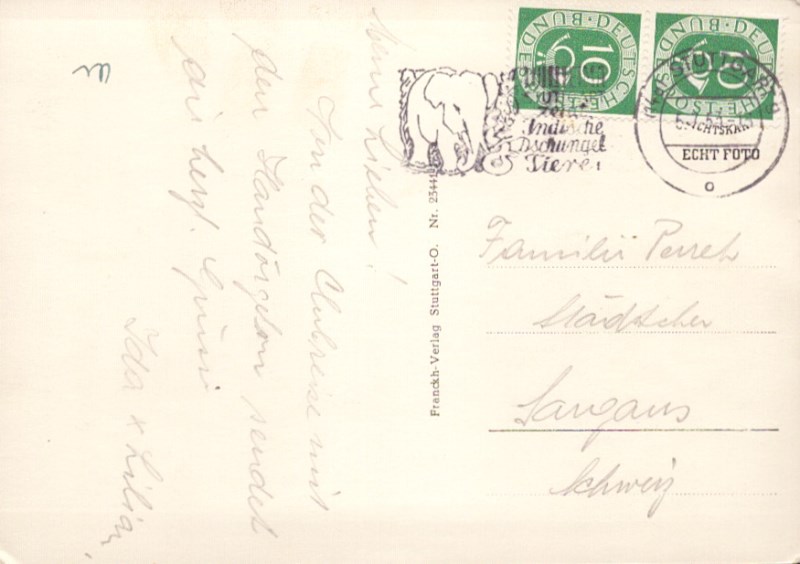 Meine Lieben!
Von der Clubreise mit
den Handörgelern sendet
die herzl. Grüsse
Ida & Lilian
10
DEUTSCHE BUNDESPOST
10
DEUTSCHE BUNDESPOST
Indische
Dschungel
Tiere
STUTTGART
ECHT FOTO
Franckh-Verlag Stuttgart-O. Nr.
Familie Perret
Städtcher
Sargans
Schweiz